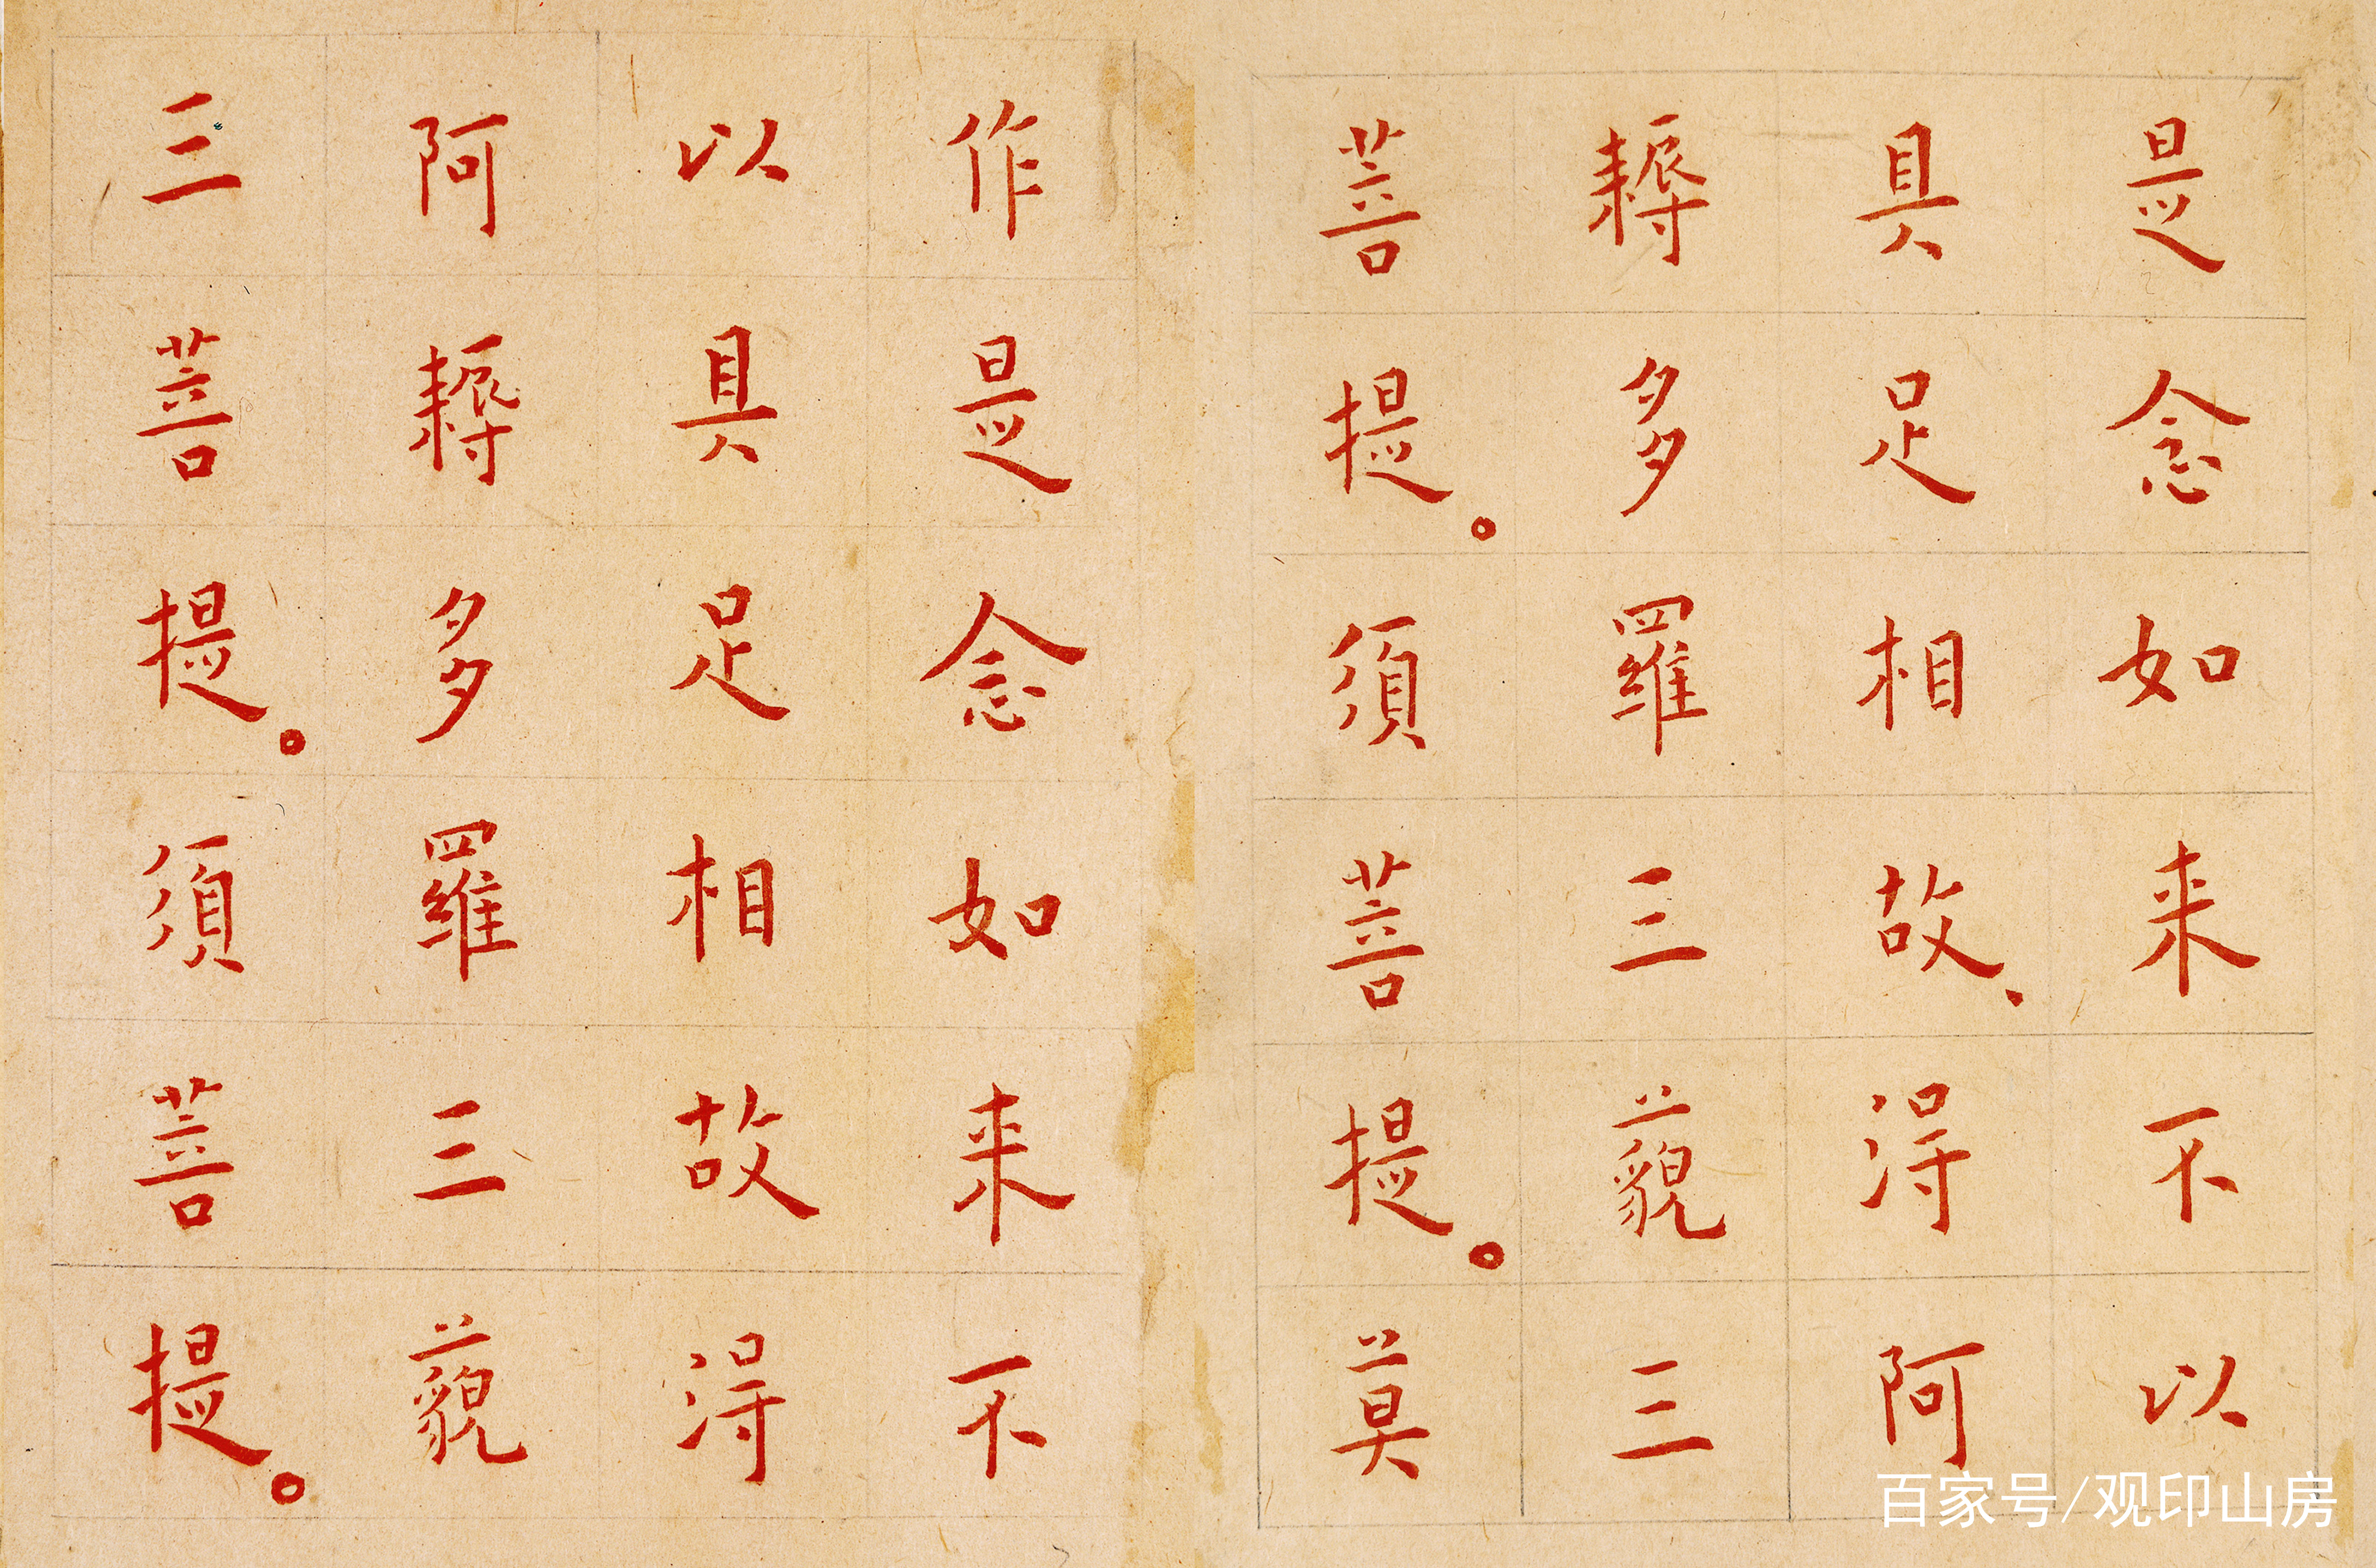 是念如来不以
具足相故、得阿
耨多羅三藐三
菩提。須菩提。莫
作是念如来不
以具足相故得
阿耨多羅三藐
三菩提。須菩提。
百家号/观印山房